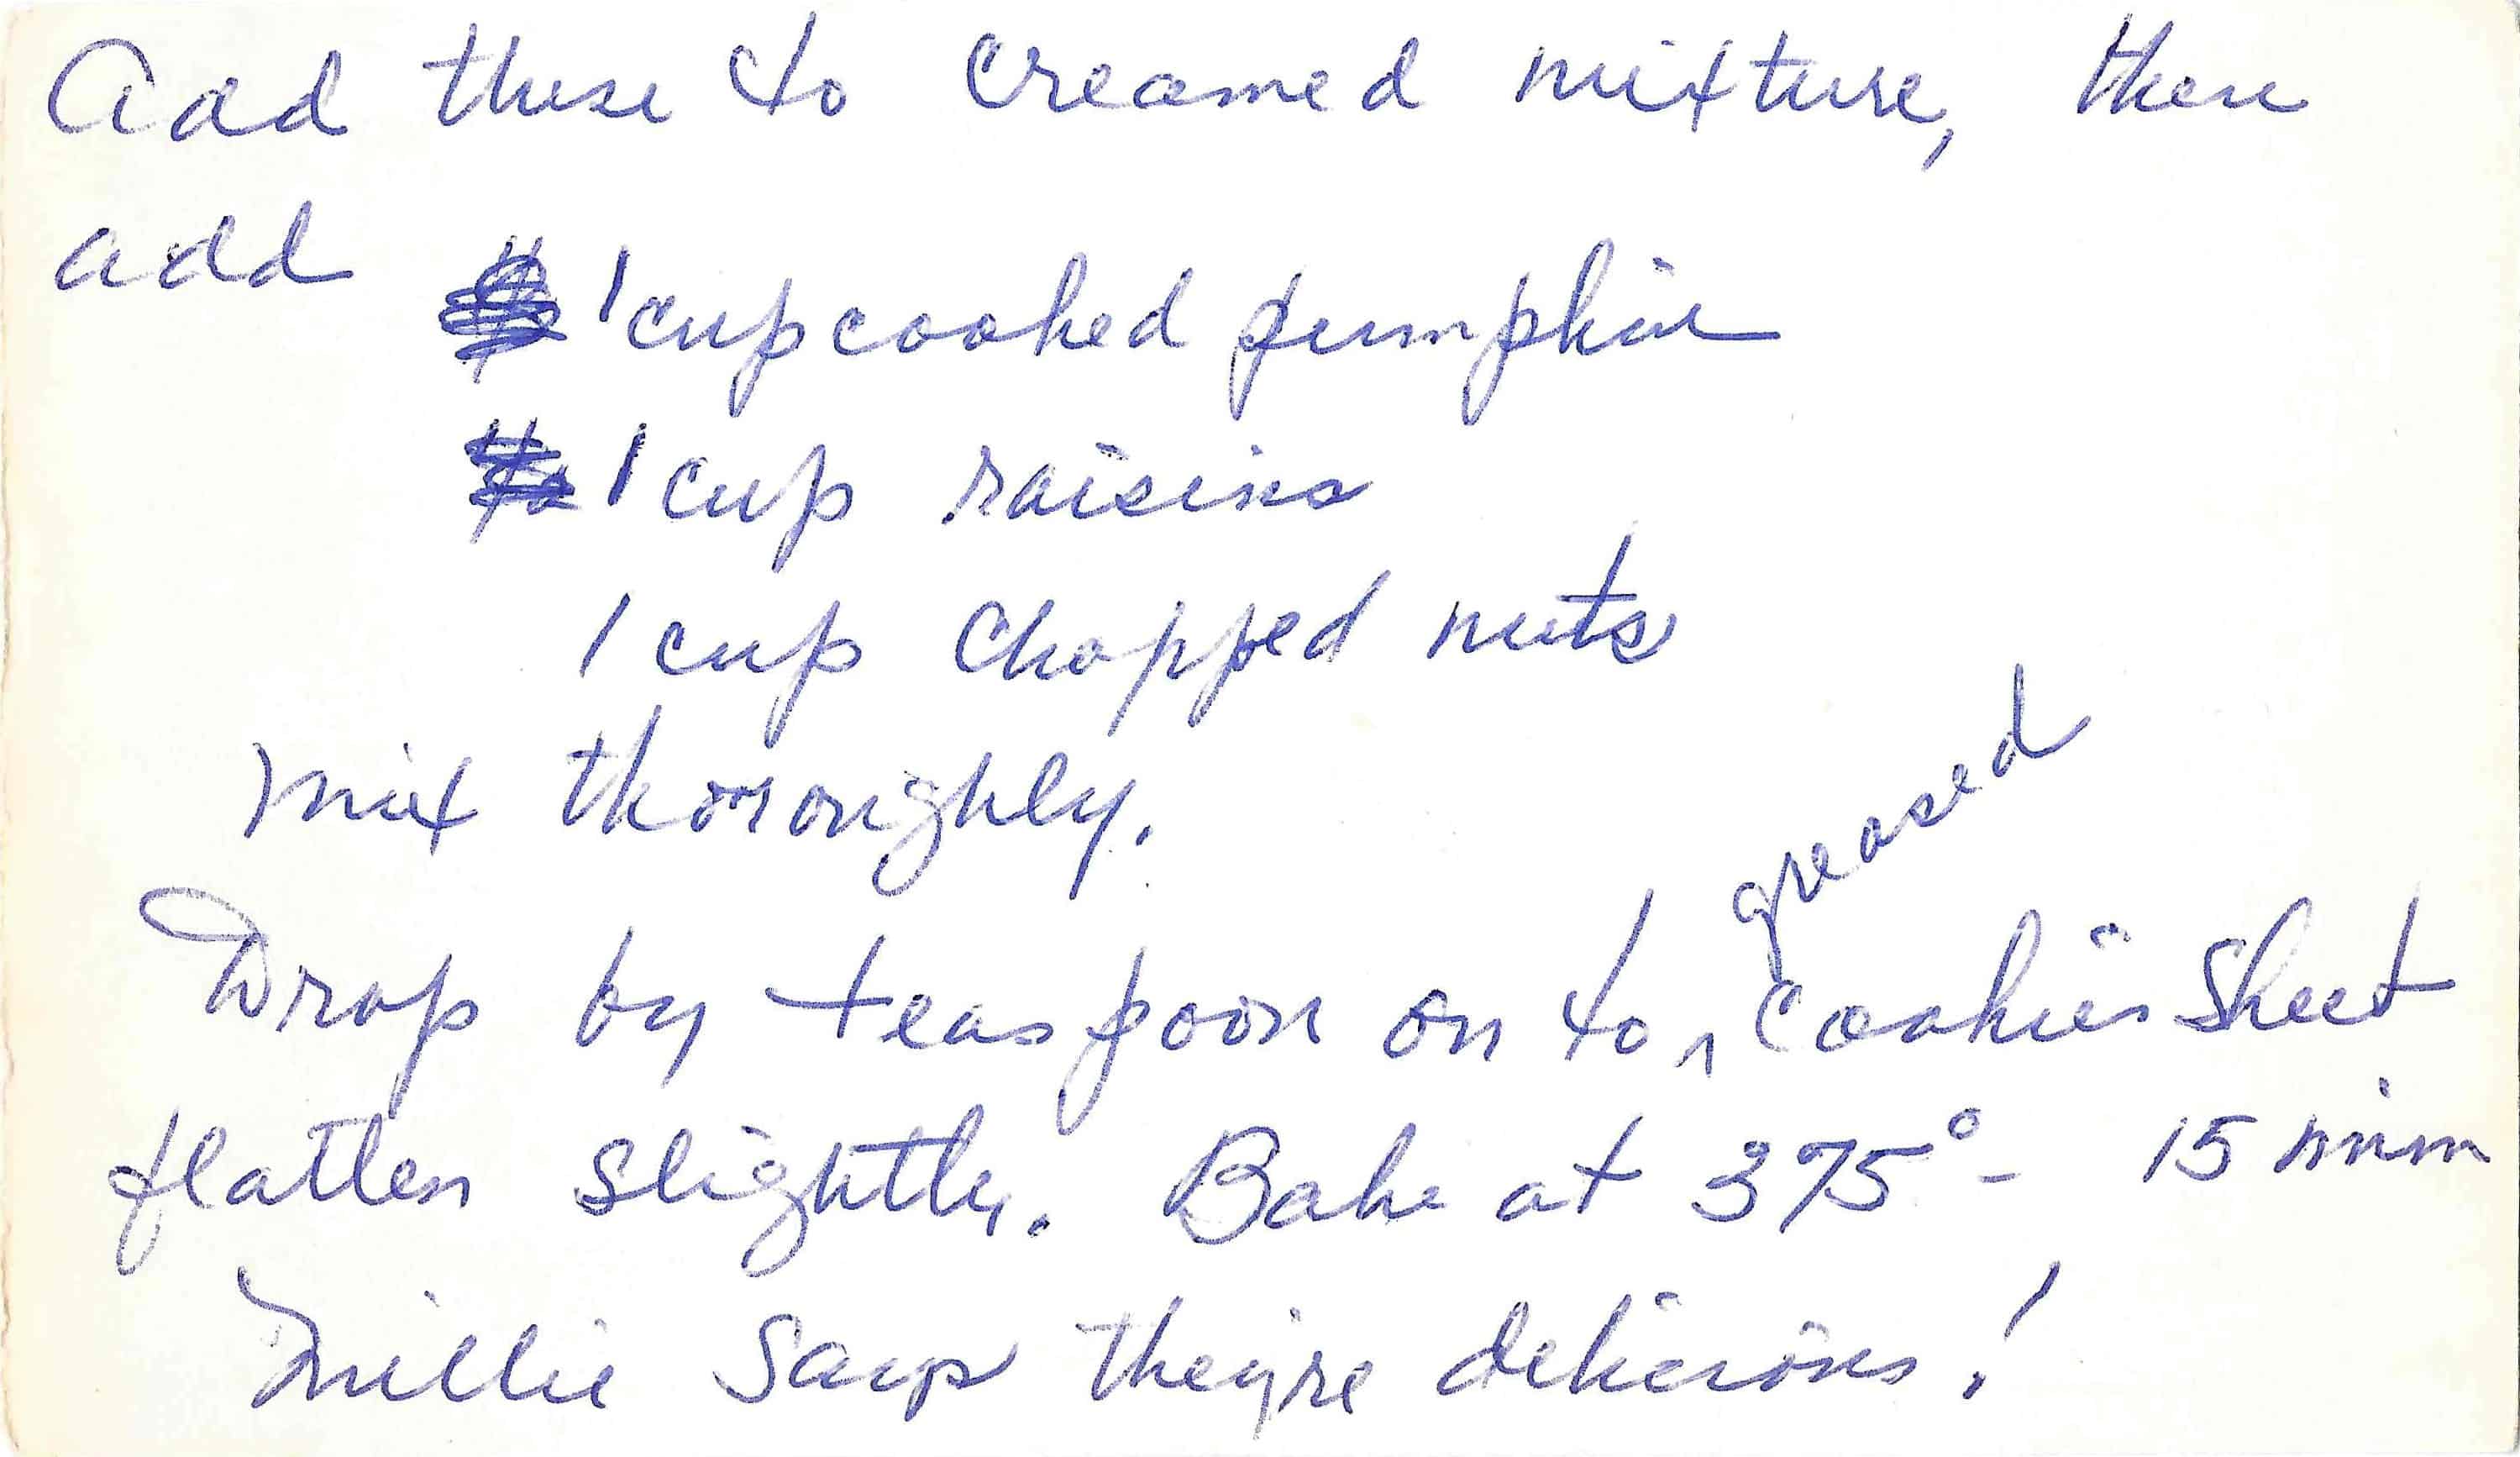 Add these to creamed mixture, then
add 1 cup cooked pumpkin
1 cup raisins
1 cup chopped nuts
Mix thoroughly.
Drop by teaspoon on to greased cookie sheet
flatten slightly. Bake at 375° - 15 min
Millie says they're delicious!